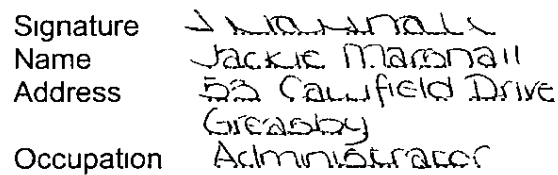 Signature J Marshall
Name Jackie Marshall
Address 53 Caulfield Drive
Greasby
Occupation Administrator